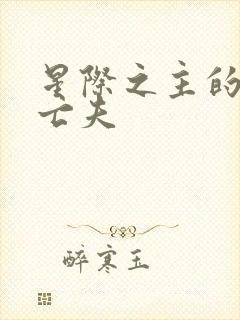 星際之主的
亡夫
醉寒玉